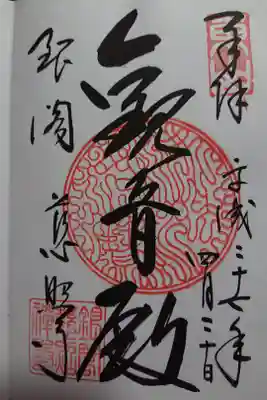 奉拝
平成二十七年
四月三十日
觀音殿
銀閣 慈照寺